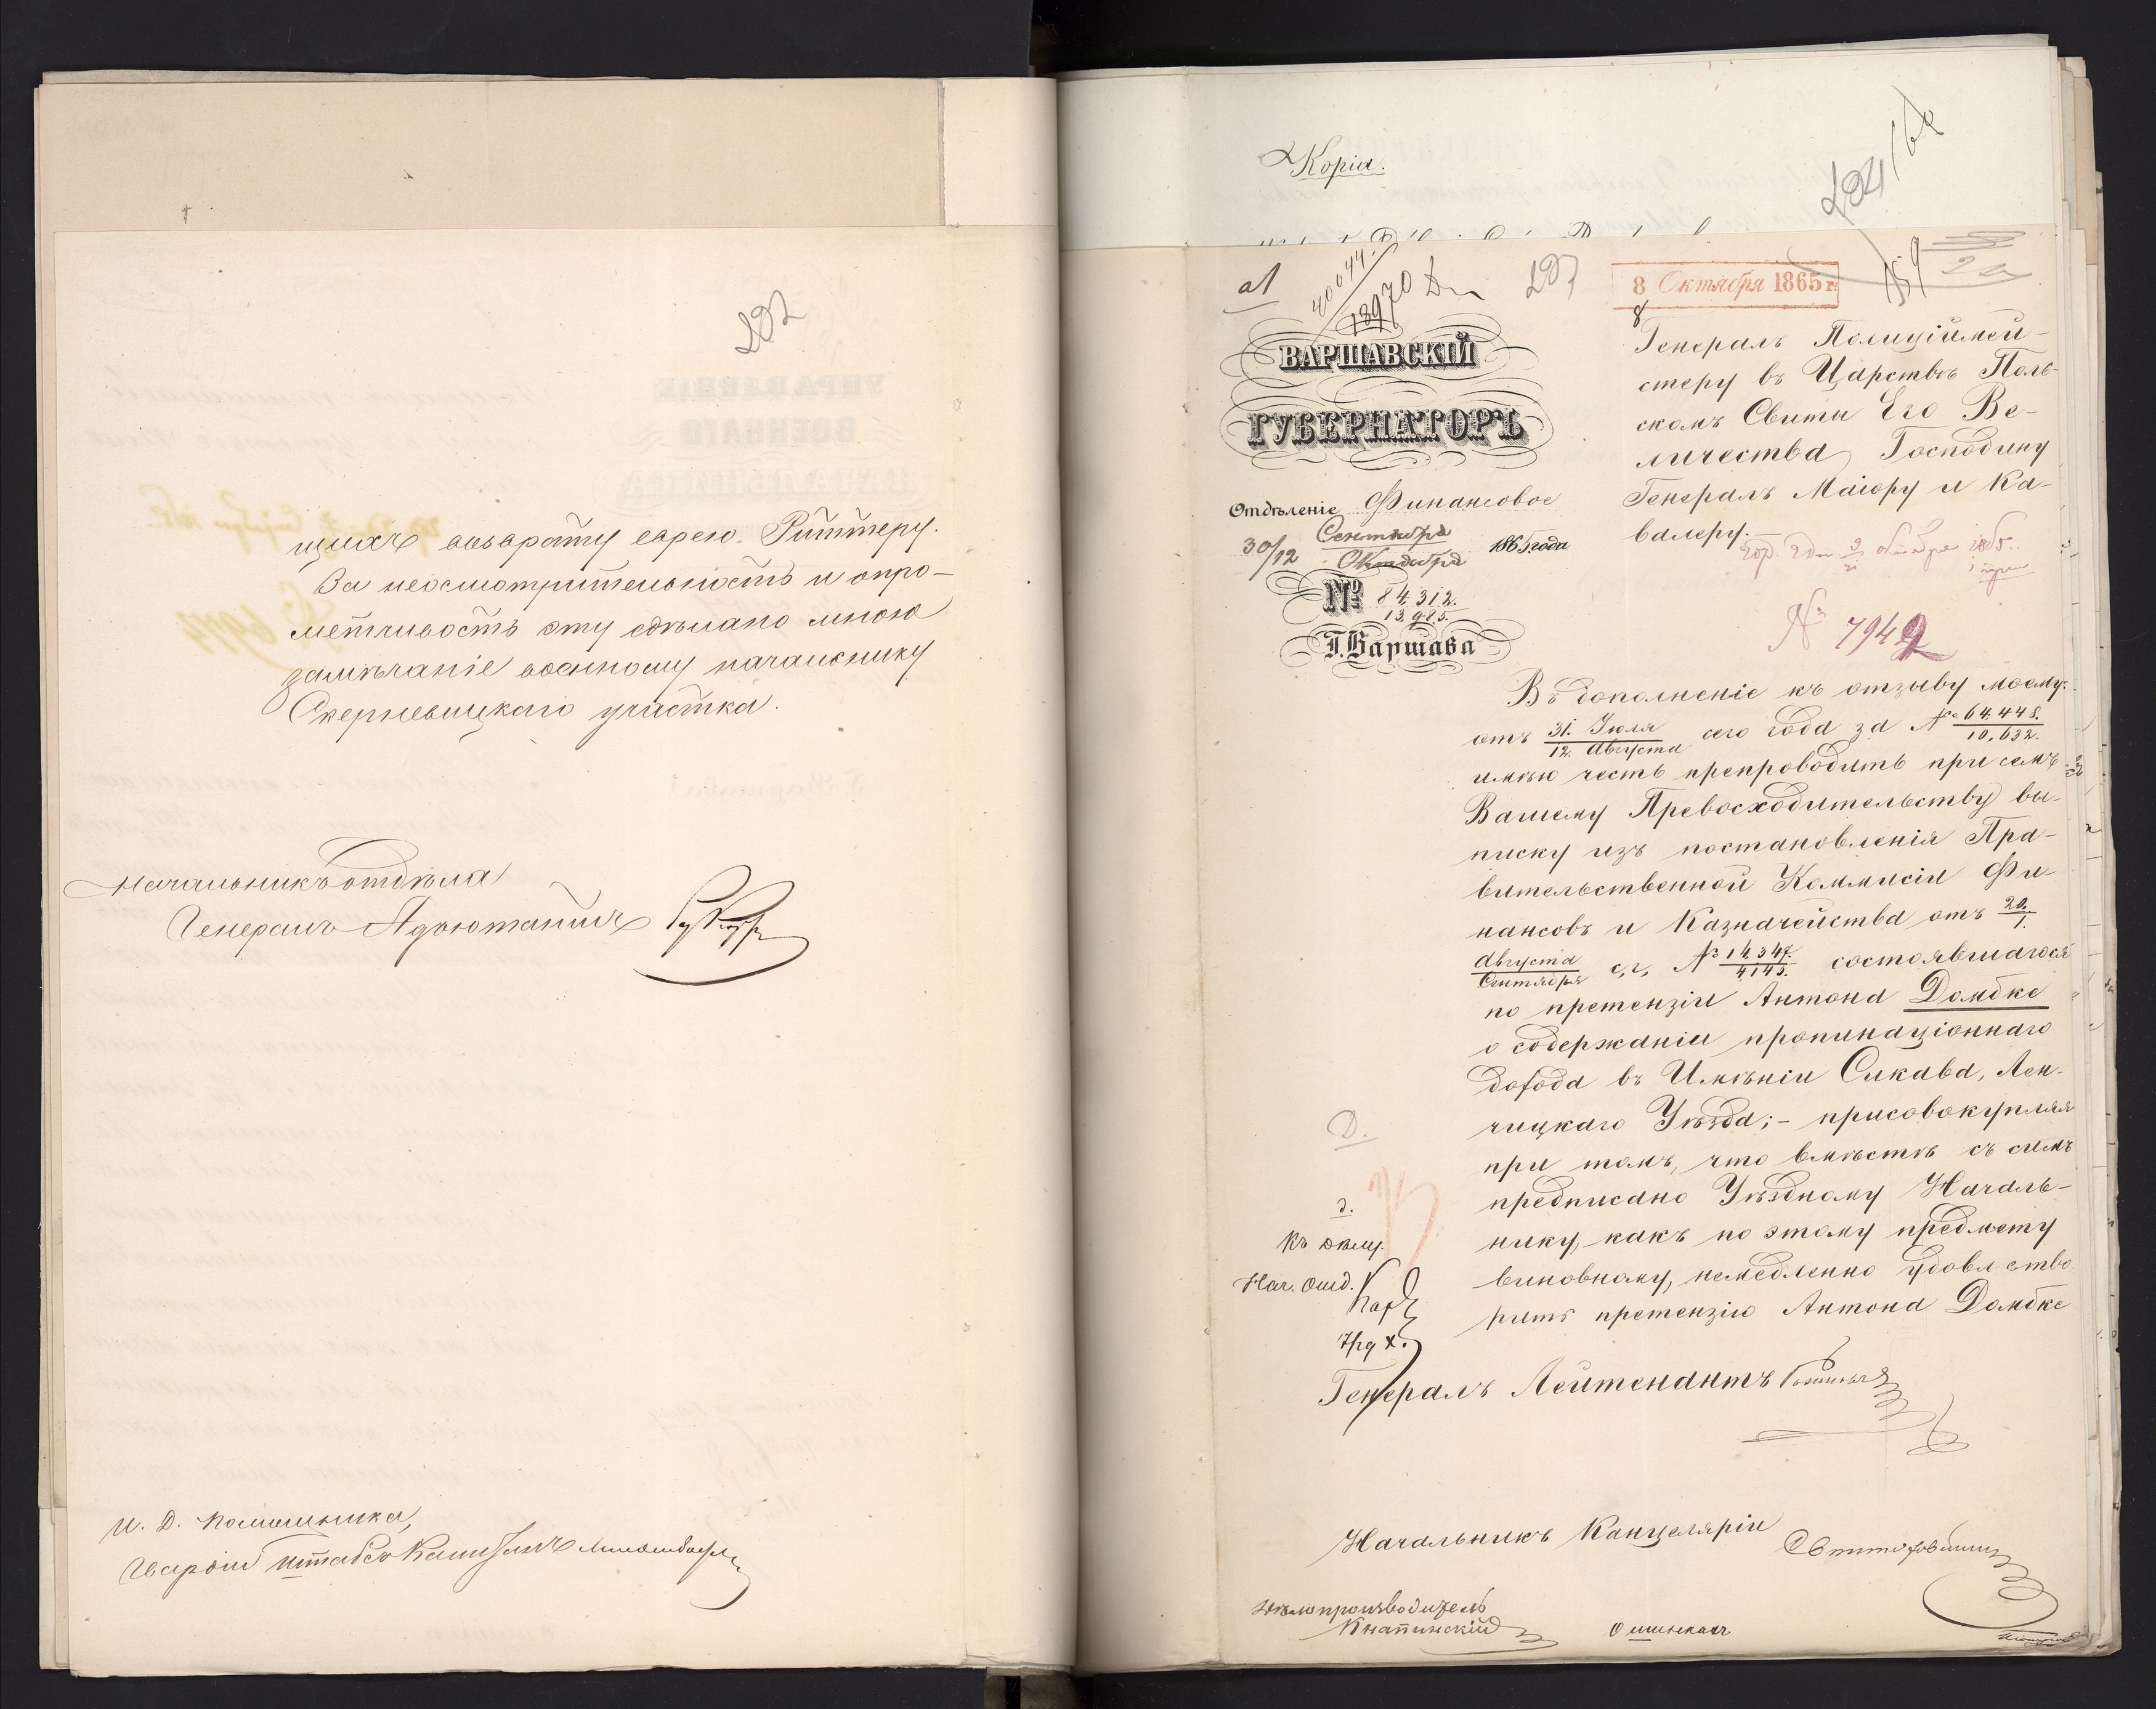 202
щихъ возврату еврею Риттеру.
За неосмотрительность и опро-
метчивость эту сдѣлано мною
замѣчаніе военному начальнику
Скерневицкаго участка.
Начальникъ отдѣла
Генералъ-Адъютантъ
И. Д. Помощника,
Гвардіи Штабсъ-Капитанъ
Kopia.
203
8 Октября 1865 г.
ВАРШАВСКІЙ
ГУБЕРНАТОРЪ
Отдѣленіе Финансовое
30/12 Сентября
Октября 1865 года
№ 84.312.
13.985.
Г. Варшава
Генералъ Полиціймей-
стеру въ Царствѣ Поль-
скомъ Свиты Его Ве-
личества Господину
Генералъ Маіору и Ка-
валеру.
№ 7942
Въ дополненіе къ отзыву моему
отъ 31. Іюля / 12. Августа сего года за № 64.448. / 10,632.
имѣю честь препроводить при семъ
Вашему Превосходительству вы-
писку изъ постановленія Пра-
вительственной Коммисіи Фи-
нансовъ и Казначейства отъ 20. / 1.
Августа / Сентября с, г, № 14.347. / 4143. состоявшагося
по претензіи Антона Домбке
о содержаніи пропинаціоннаго
дохода въ Имѣніи Сикава, Лен-
чицкаго Уѣзда; - присовокупляя
при томъ, что вмѣстѣ съ симъ
предписано Уѣздному Началь-
нику, какъ по этому предмету
виновному, немедленно удовлство
рить претензію Антона Домбке
Д.
Къ дѣлу.
Нач. Отд.
Генералъ Лейтенантъ
Начальникъ Канцеляріи
Дѣлопроизводитель